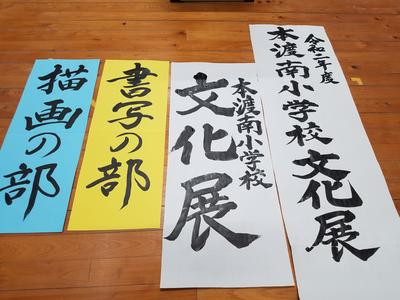 令和二年度
本渡南小学校文化展
本渡南小学校
文化展
書写の部
描画の部